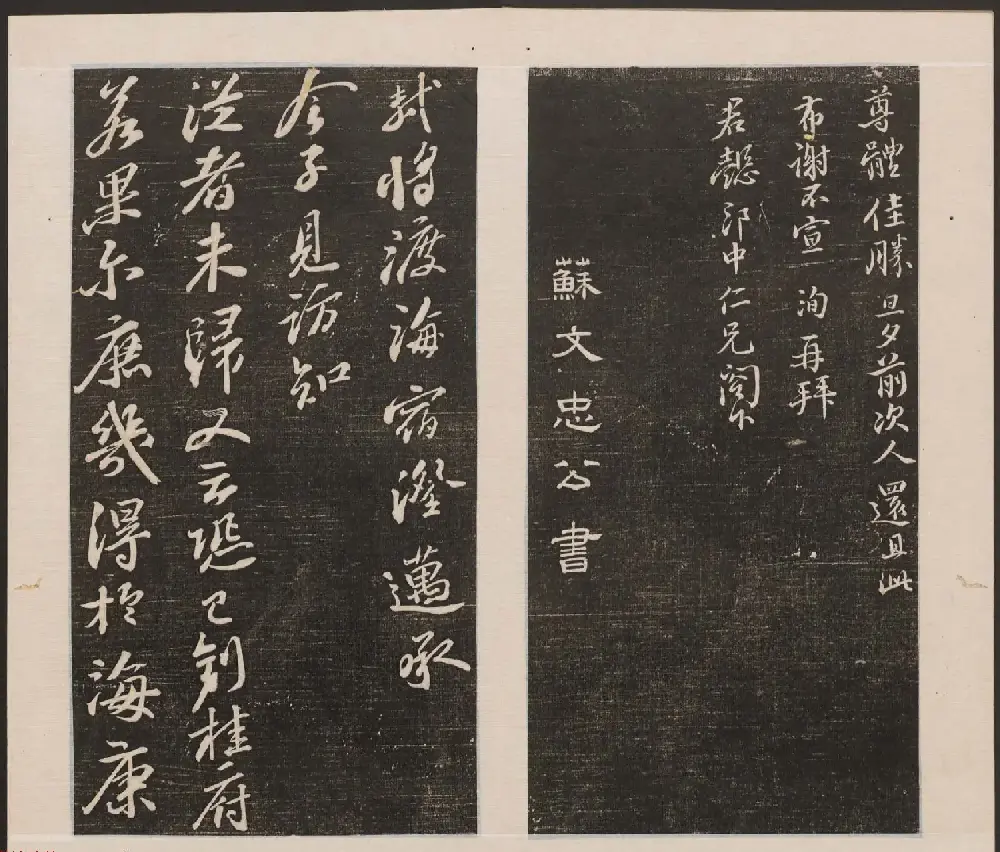 尊體佳勝旦夕前次人還且此
布謝不宣 洵再拜
君懿郎中仁兄閤下
蘇文忠公書
軾將渡海宿澄邁承
令子見訪知
從者未歸又云恐已到桂府
若果尔庶幾得於海康